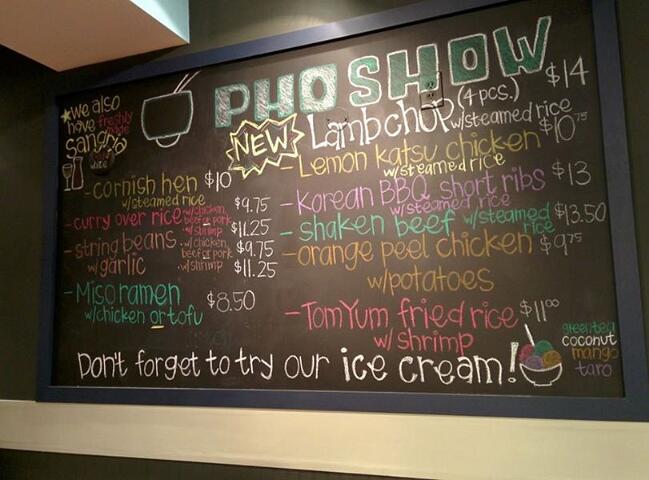 PHO SHOW
★we also
have freshly
made
Sangria
white
NEW
Lambchop (4 pcs.) $14
w/steamed rice
- Lemon katsu chicken $10.75
w/steamed rice
- Korean BBQ short ribs $13
w/steamed rice
- shaken beef w/steamed $13.50
rice
- orange peel chicken $9.75
w/potatoes
- Tom Yum fried rice $11.00
w/shrimp
- cornish hen $10
w/steamed rice
- curry over rice w/chicken, $9.75
beef or pork
w/shrimp $11.25
- string beans w/chicken, $9.75
w/garlic beef or pork
w/shrimp $11.25
- Miso ramen $8.50
w/chicken or tofu
Don't forget to try our ice cream!
green tea
coconut
mango
taro